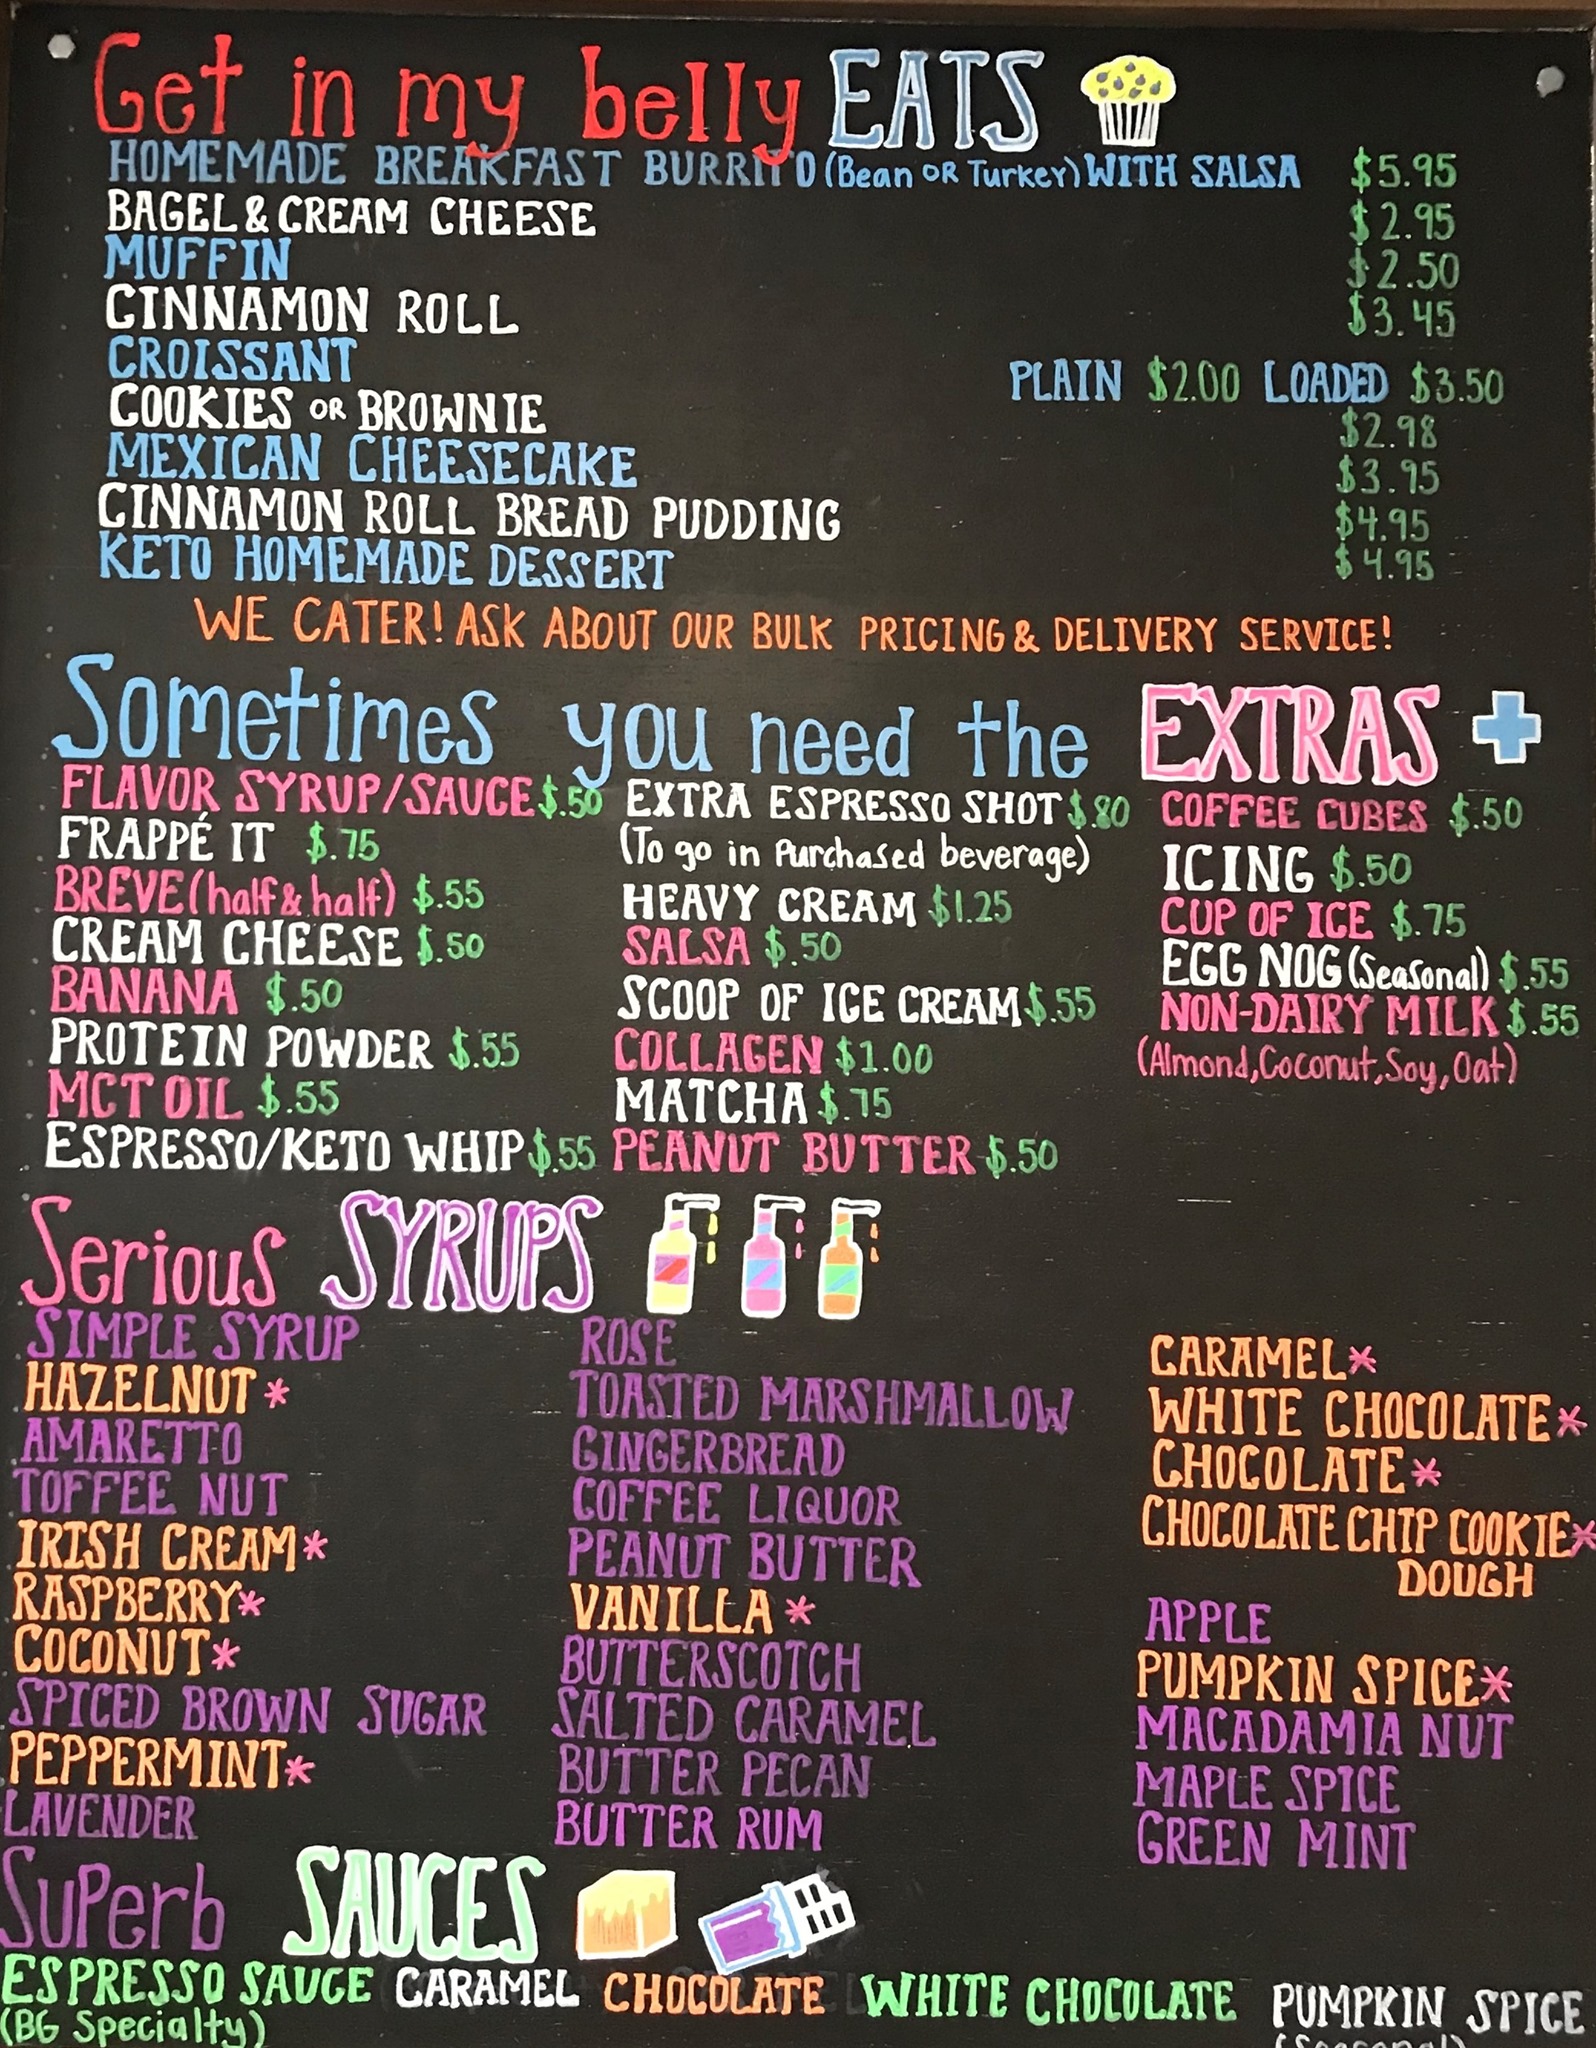 Get in my belly EATS
HOMEMADE BREAKFAST BURRITO (Bean OR Turkey) WITH SALSA $5.95
BAGEL & CREAM CHEESE $2.95
MUFFIN $2.50
CINNAMON ROLL $3.45
CROISSANT PLAIN $2.00 LOADED $3.50
COOKIES OR BROWNIE $2.98
MEXICAN CHEESECAKE $3.95
CINNAMON ROLL BREAD PUDDING $4.95
KETO HOMEMADE DESSERT $4.95
WE CATER! ASK ABOUT OUR BULK PRICING & DELIVERY SERVICE!
Sometimes you need the EXTRAS +
FLAVOR SYRUP/SAUCE $.50
FRAPPÉ IT $.75
BREVE (half & half) $.55
CREAM CHEESE $.50
BANANA $.50
PROTEIN POWDER $.55
MCT OIL $.55
ESPRESSO/KETO WHIP $.55
EXTRA ESPRESSO SHOT $.80
(To go in Purchased beverage)
HEAVY CREAM $1.25
SALSA $.50
SCOOP OF ICE CREAM $.55
COLLAGEN $1.00
MATCHA $.75
PEANUT BUTTER $.50
COFFEE CUBES $.50
ICING $.50
CUP OF ICE $.75
EGG NOG (Seasonal) $.55
NON-DAIRY MILK $.55
(Almond, Coconut, Soy, Oat)
Serious SYRUPS
SIMPLE SYRUP
HAZELNUT *
AMARETTO
TOFFEE NUT
IRISH CREAM *
RASPBERRY *
COCONUT *
SPICED BROWN SUGAR
PEPPERMINT *
LAVENDER
ROSE
TOASTED MARSHMALLOW
GINGERBREAD
COFFEE LIQUOR
PEANUT BUTTER
VANILLA *
BUTTERSCOTCH
SALTED CARAMEL
BUTTER PECAN
BUTTER RUM
CARAMEL *
WHITE CHOCOLATE *
CHOCOLATE *
CHOCOLATE CHIP COOKIE *
DOUGH
APPLE
PUMPKIN SPICE *
MACADAMIA NUT
MAPLE SPICE
GREEN MINT
Superb SAUCES
ESPRESSO SAUCE CARAMEL CHOCOLATE WHITE CHOCOLATE PUMPKIN SPICE
(BG Specialty) (Seasonal)